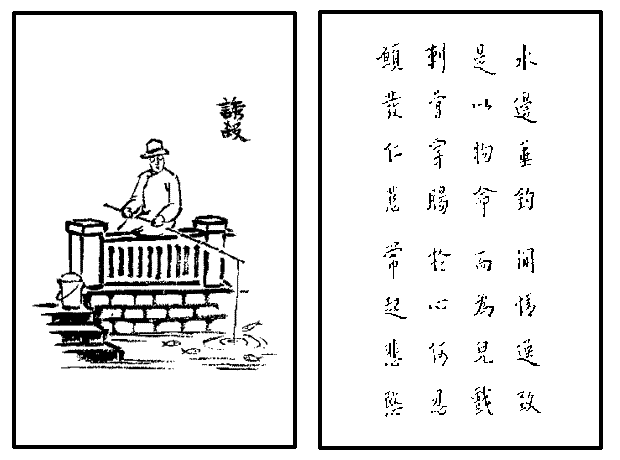 誘殺
水邊垂釣 閒情逸致
是以物命 而為兒戲
刺骨穿腸 於心何忍
願發仁慈 常起悲愍